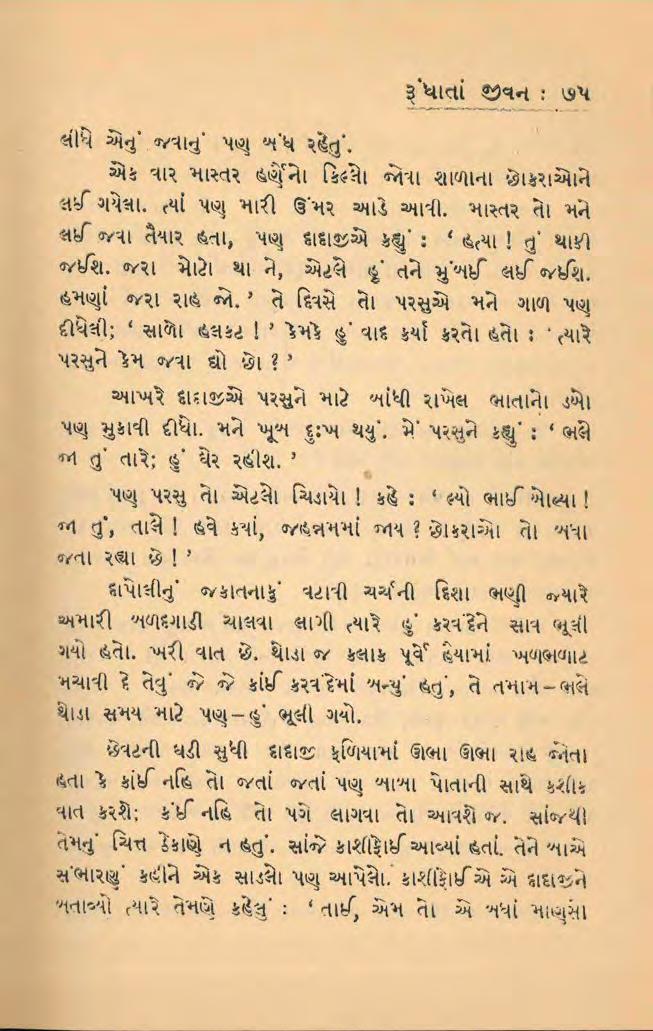 રૂંધાતાં જીવન : ૭૫
લીધે એનું જવાનું પણ બંધ રહેતું.
એક વાર માસ્તર હર્ણેનો કિલ્લો જોવા શાળાના છોકરાઓને
લઈ ગયેલા. ત્યાં પણ મારી ઉંમર આડે આવી. માસ્તર તો મને
લઈ જવા તૈયાર હતા, પણ દાદાજીએ કહ્યું : ‘ હત્યા ! તું થાકી
જઈશ. જરા મોટો થા ને, એટલે હું તને મુંબઈ લઈ જઈશ.
હમણાં જરા રાહ જો. ’ તે દિવસે તો પરસુએ મને ગાળ પણ
દીધેલી; ‘ સાળો હલકટ ! ’ કેમકે હું વાદ કર્યા કરતો હતો : ‘ ત્યારે
પરસુને કેમ જવા દ્યો છો ? ’
આખરે દાદાજીએ પરસુને માટે બાંધી રાખેલ ભાતાનો ડબો
પણ મુકાવી દીધો. મને ખૂબ દુઃખ થયું. મેં પરસુને કહ્યું : ‘ ભલે
જા તું તારે; હું ઘેર રહીશ. ’
પણ પરસુ તો એટલો ચિડાયો ! કહે : ‘ લ્યો ભાઈ બોલ્યા !
જા તું, તાલે ! હવે કયાં, જહન્નમમાં જાય ? છોકરાઓ તો બધા
જતા રહ્યા છે ! ’
દાપોલીનું જકાતનાકું વટાવી ચર્ચની દિશા ભણી જ્યારે
અમારી બળદગાડી ચાલવા લાગી ત્યારે હું કરવંદેને સાવ ભૂલી
ગયો હતો. ખરી વાત છે. થોડા જ કલાક પૂર્વે હૈયામાં ખળભળાટ
મચાવી દે તેવું જે જે કાંઈ કરવંદેમાં બન્યું હતું, તે તમામ–ભલે
થોડા સમય માટે પણ–હું ભૂલી ગયો.
છેવટની ઘડી સુધી દાદાજી ફળિયામાં ઊભા ઊભા રાહ જોતા
હતા કે કાંઈ નહિ તો જતાં જતાં પણ બાબા પોતાની સાથે કશીક
વાત કરશે; કંઈ નહિ તો પગે લાગવા તો આવશે જ. સાંજથી
તેમનું ચિત્ત ઠેકાણે ન હતું. સાંજે કાશીફોઈ આવ્યાં હતાં. તેને બાએ
સંભારણું કહીને એક સાડલો પણ આપેલો. કાશીફોઈએ એ દાદાજીને
બતાવ્યો ત્યારે તેમણે કહેલું : ‘ તાઈ, એમ તો એ બધાં માણસો